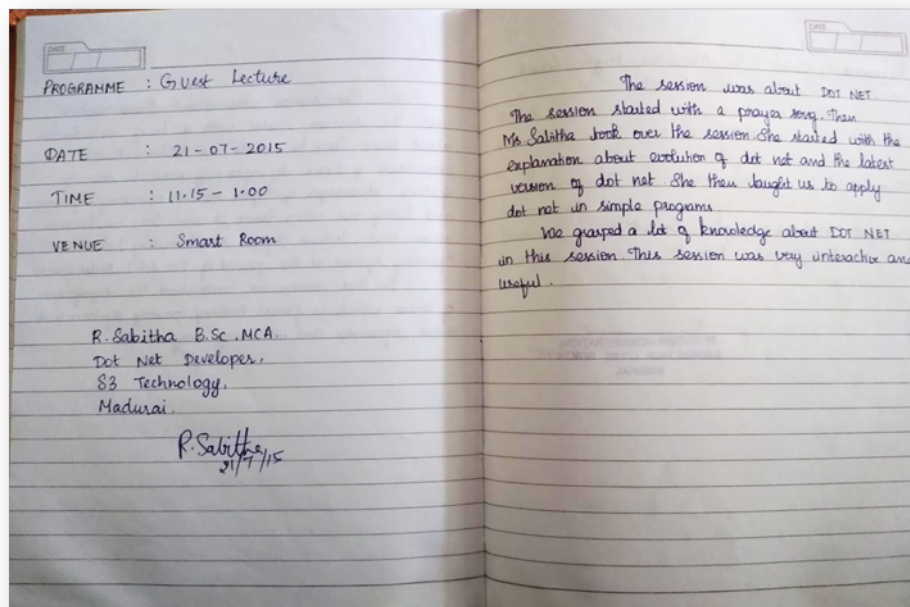 DATE
PROGRAMME : Guest Lecture
DATE : 21-07-2015
TIME : 11.15 - 1.00
VENUE : Smart Room
R. Sabitha B.Sc., MCA.
Dot Net Developer,
S3 Technology,
Madurai.
R. Sabitha
21/7/15
DATE
The session was about DOT NET.
The session started with a prayer song. Then
Ms. Sabitha took over the session. She started with the
explanation about evolution of dot net and the latest
version of dot net. She then taught us to apply
dot net in simple programs.
We grasped a lot of knowledge about DOT NET
in this session. This session was very interactive and
useful.